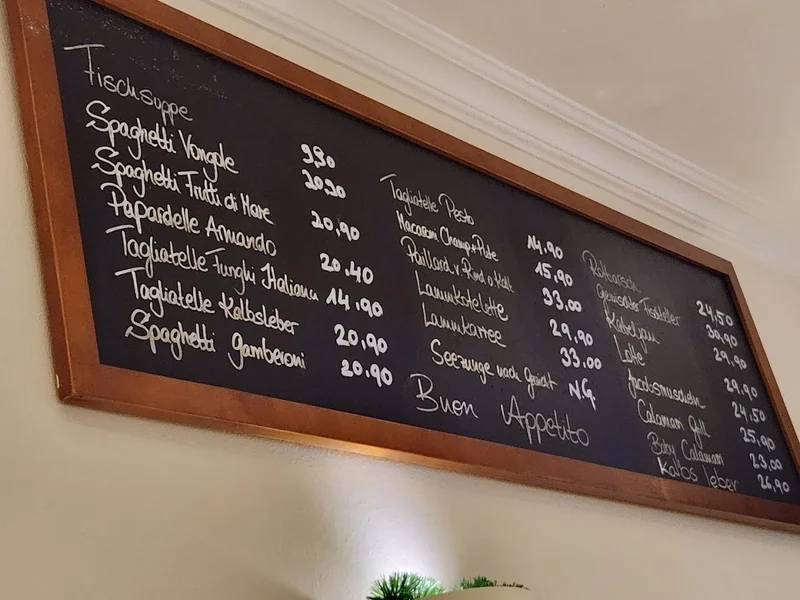 Fischsuppe 9,90
Spaghetti Vongole 20,90
Spaghetti Frutti di Mare 20,90
Papardelle Armando 20.40
Tagliatelle Funghi Italiana 14.90
Tagliatelle Kalbsleber 20,90
Spaghetti gamberoni 20.90
Tagliatelle Pesto 14.90
Macaroni Champ+Pute 15,90
Paillard v Rind o Kalb 33,00
Lammkotelette 29,90
Lammkarree 33.00
Seezunge nach Gewicht N.G.
Buon Appetito
Rotbarsch 24,50
Gemischter Fischteller 30,90
Kabeljau 29,90
Lotte 29,90
Jacobsmuscheln 24,50
Calamari Grill 25,90
Baby Calamari 23,00
Kalbs leber 26,90